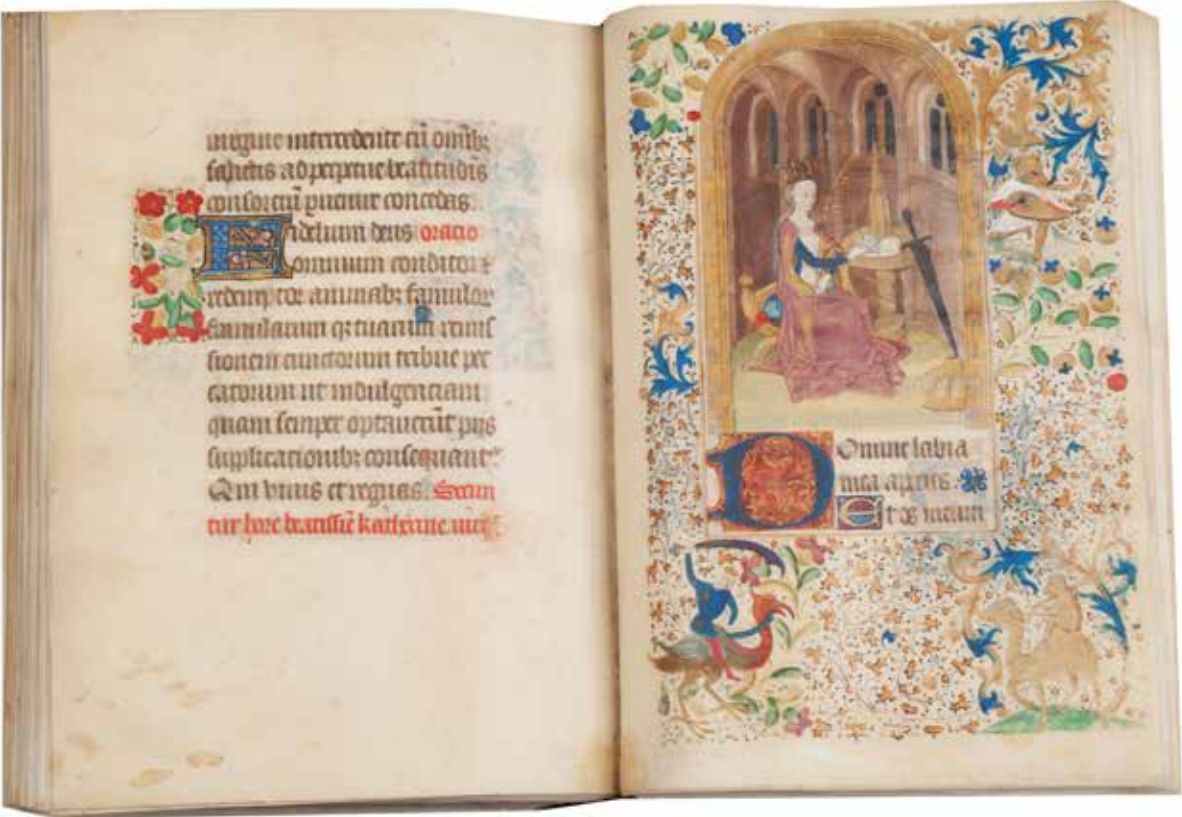 uirgine intercedente cū omībꝫ
sanctis ad perpetue beatitudīs
consorciū ꝑuenire concedas.
Fidelium deus oratio
omnium conditor ⁊
redemptor animabꝫ famuloꝝ
famularum qꝫ tuarum remis
sionem cunctorum tribue pec
catorum ut indulgenciam
quam semper optauerūt piis
supplicationibꝫ consequantᵘʳ
Qui viuis et regnas. Secun
tur hore beatissiē katherine
Domine labia
mea aperies.
Et os meum